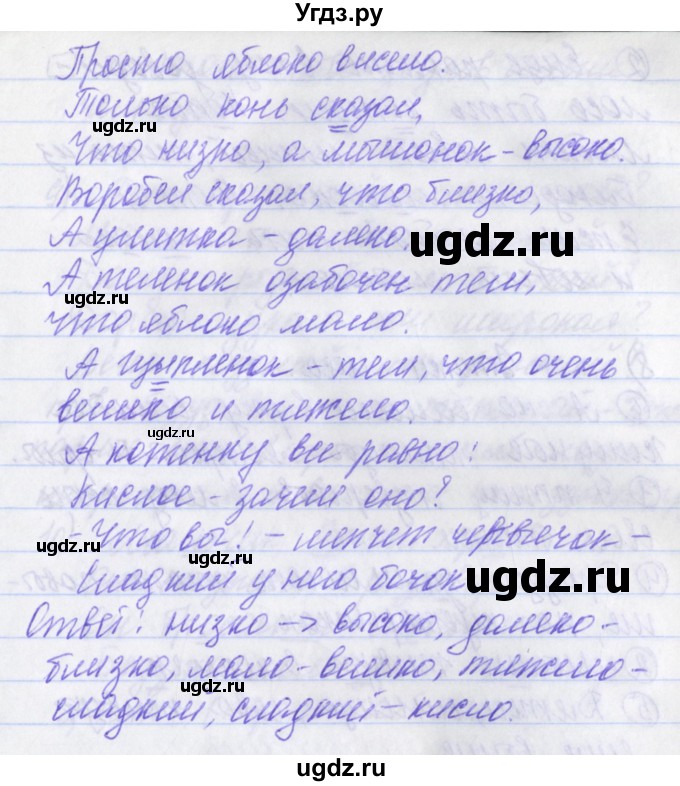 Угдз.ру
Просто яблоко висело.
Только конь сказал,
Что низко, а мышонок - высоко.
Воробей сказал, что близко,
А улитка - далеко.
А теленок озабочен тем,
что яблоко мало.
А цыпленок - тем, что очень
велико и тяжело.
А котенку все равно:
Кислое - зачем оно?
- Что вы! - шепчет червячок -
Сладкий у него бочок
Ответ: низко -> высоко, далеко -
близко, мало - велико, тяжело -
сладкий, сладкий - кисло.
ugdz.ru
ugdz.ru
ugdz.ru
ugdz.ru
ugdz.ru
ugdz.ru
ugdz.ru
ugdz.ru
ugdz.ru
ugdz.ru